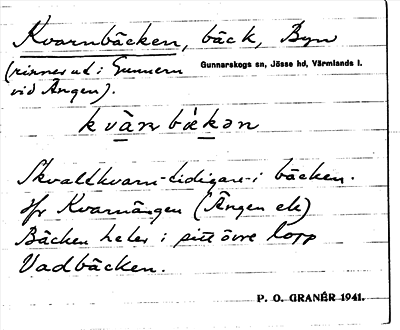 Kvarnbäcken, bäck, Byn
(rinner ut i Gunnern Gunnarskogs sn, Jösse hd, Värmlands l.
vid Ängen).
kvàrnbækən
Skvaltkvarn tidigare i bäcken.
Jfr Kvarnängen (Ängen ek)
Bäcken heter i sitt övre lopp
Vadbäcken.
P. O. GRANÉR 1941.